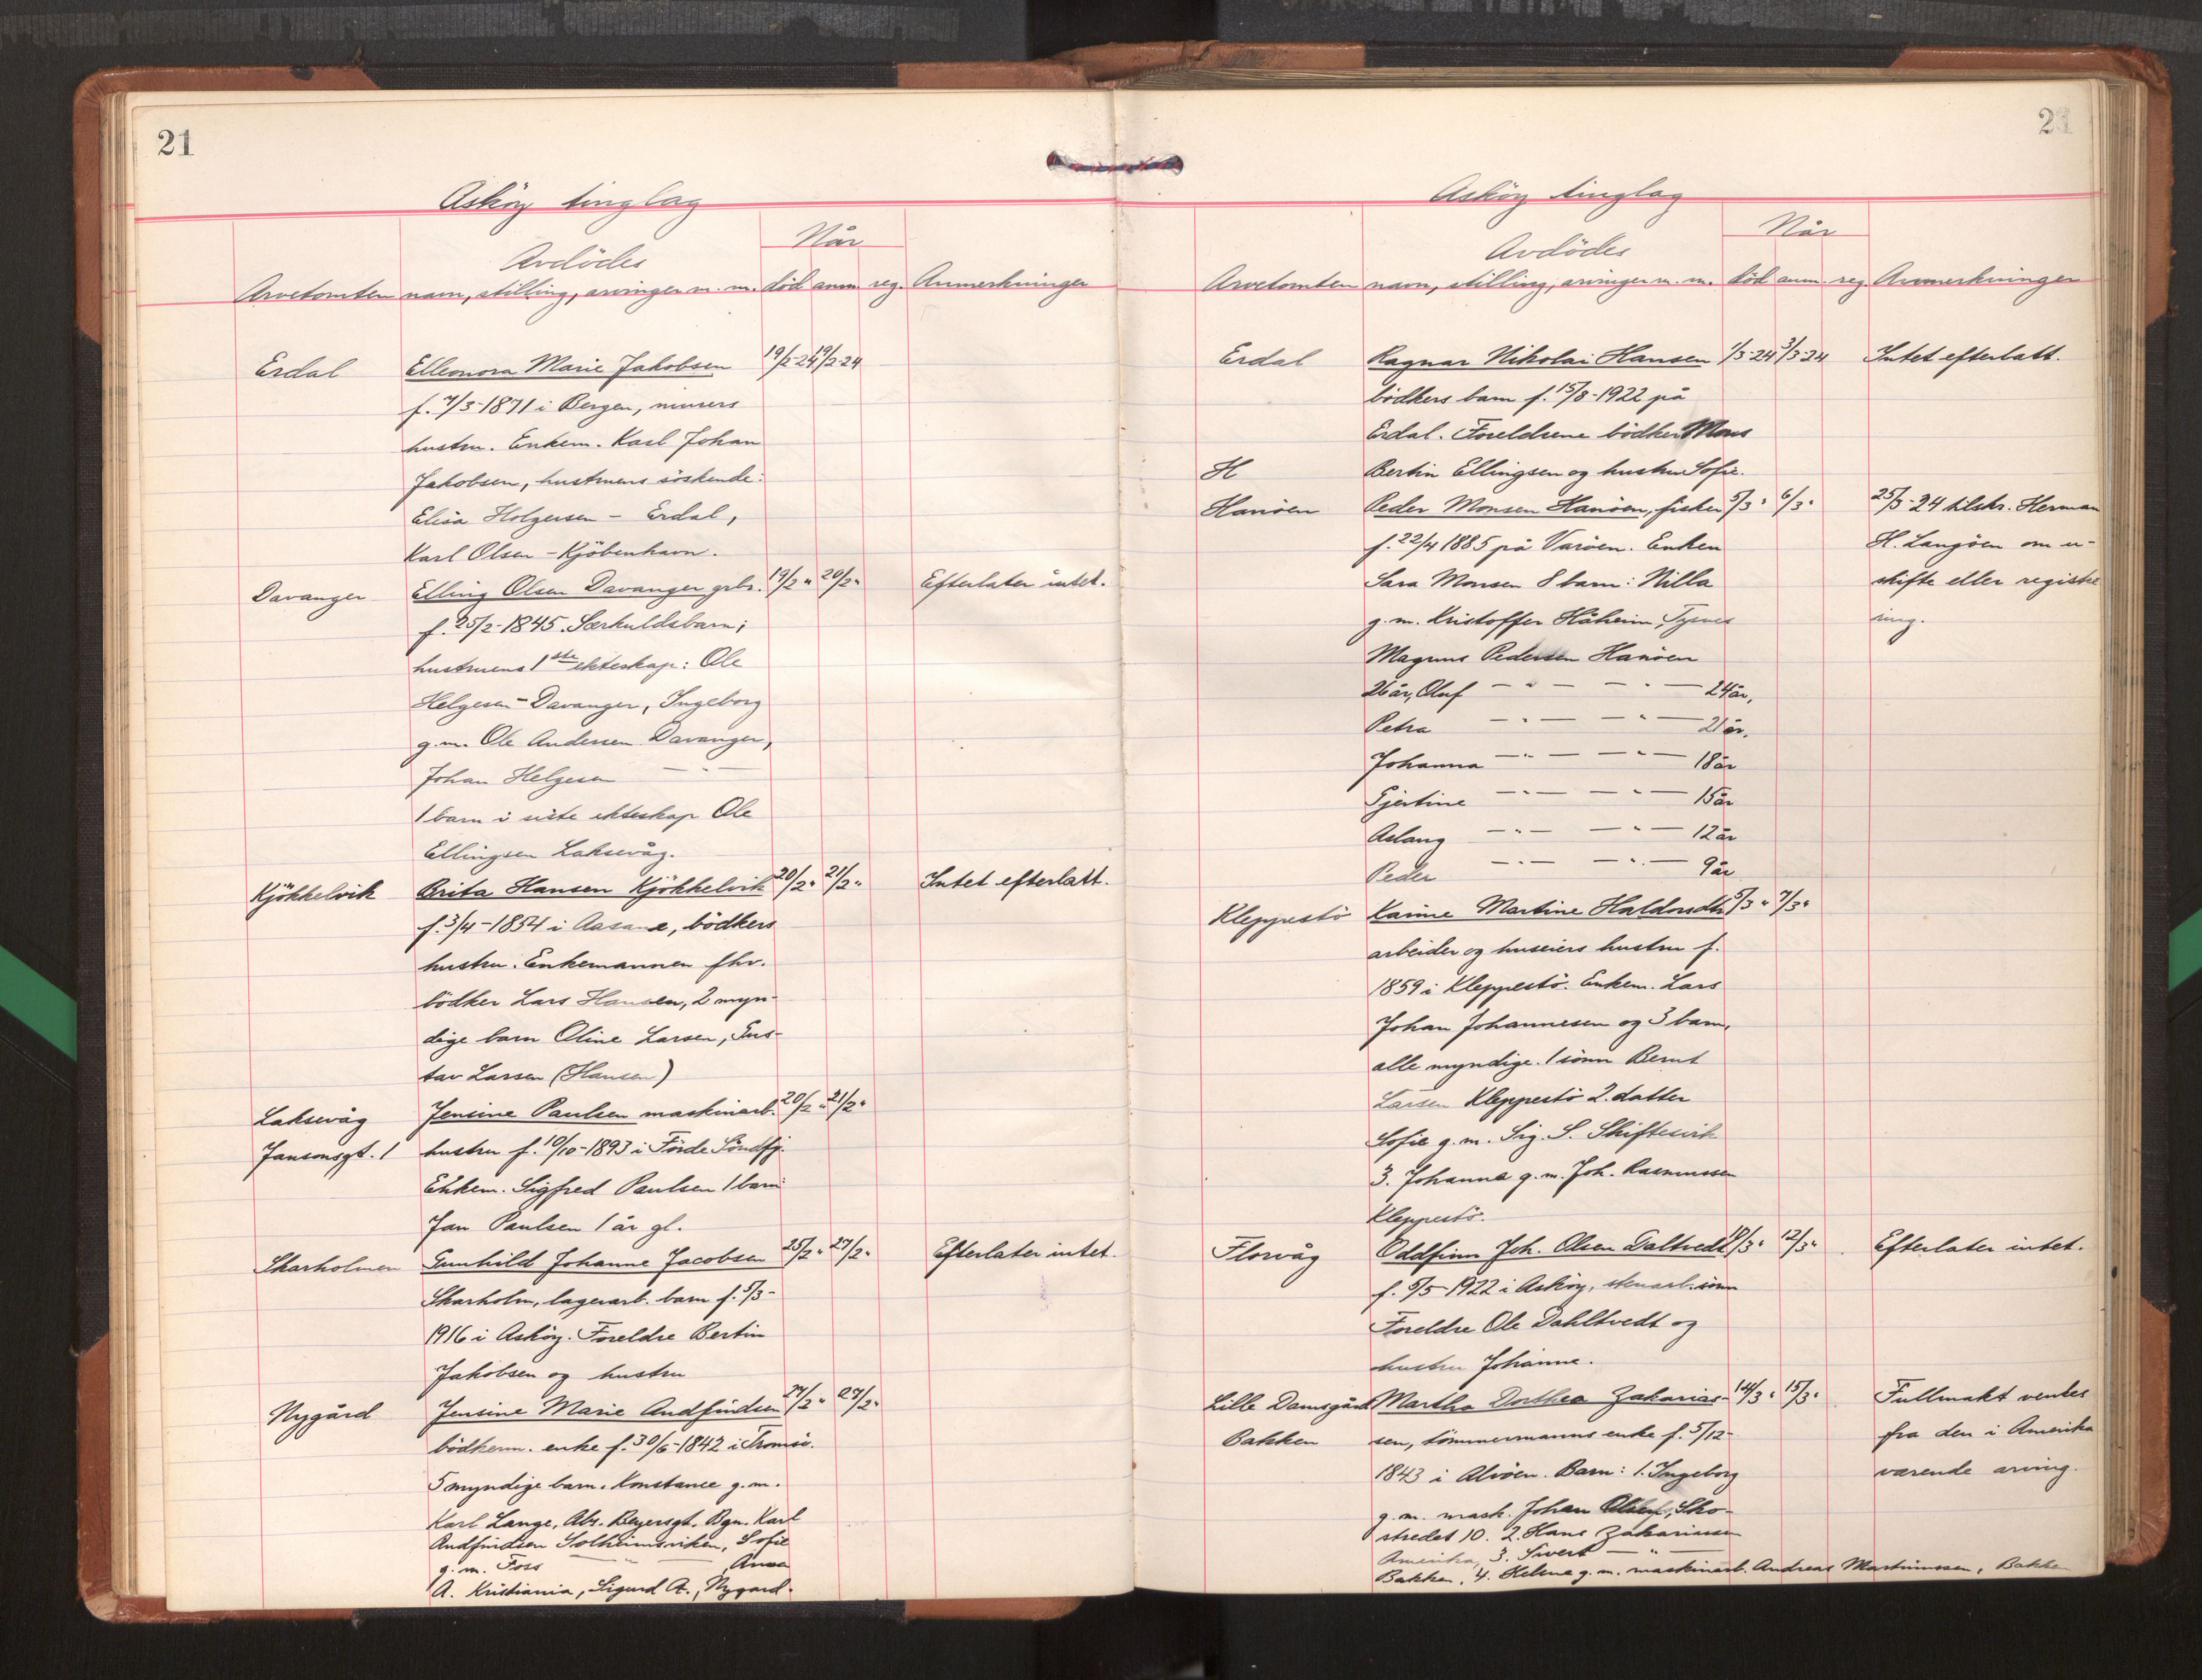 21
Asköy tinglag
Når
Avdödes
Arvetomten navn, stilling, arvinger m. m. död anm. reg. Anmerkninger
Erdal Elleonora Marie Jakobsen 19/2-24 19/2-24
f. 7/3-1871 i Bergen, murers
hustru. Enkem. Karl Johan
Jakobsen, hustruens söskende:
Elisa Holgersen - Erdal,
Karl Olsen - Kjöbenhavn.
Davanger Elling Olsen Davanger grbr. 19/2 " 20/2 " Efterlater intet.
f. 25/2-1845. Særkuldsbarn;
hustruens 1ste ekteskap: Ole
Helgesen - Davanger, Ingeborg
g.m. Ole Andersen Davanger,
Johan Helgesen — " —
1 barn i siste ekteskap Ole
Ellingsen Laksevåg.
Kjökkelvik Brita Hansen Kjökkelvik 20/2 " 21/2 " Intet efterlatt.
f. 3/4-1854 i Aasane, bödkers
hustru. Enkemannen fhv.
bödker Lars Hansen, 2 myn-
dige barn Oline Larsen, Gus-
tav Larsen (Hansen)
Laksevåg Jensine Paulsen maskinarb. 20/2 " 21/2 "
Jansonsgt. 1 hustru f. 10/10-1893 i Förde Söndfj.
Enkem. Sigfred Paulsen 1 barn
Jan Paulsen 1 år gl.
Skarholmen Gunhild Johanne Jacobsen 25/2 " 27/2 " Efterlater intet.
Skarholm, lagerarb. barn f. 5/3-
1916 i Asköy. Foreldre Bertin
Jakobsen og hustru
Nygård Jensine Marie Andfindsen 27/2 " 27/2 "
bödkerm. enke f. 30/6-1842 i Tromsö.
5 myndige barn. Konstance g.m.
Karl Lange, Abs. Beyersgt. Bgn. Karl
Andfindsen Solheimsviken, Sofie
g.m. Foss — " — Anna
A. Kristiania, Sigurd A., Nygard.
2
Asköy tinglag
Når
Avdödes
Arvetomten navn, stilling, arvinger m. m. död anm. reg. Anmerkninger
Erdal Ragnar Nikolai Hansen 1/3-24 3/3-24 Intet efterlatt.
bödkers barn f. 15/8-1922 på
Erdal. Foreldrene bödker Mons
H Bertin Ellingsen og hustru Sofie.
Hanöen Peder Monsen Hanöen, fisker 5/3 " 6/3 " 25/3-24 tilskr. Herman
f. 22/4 1885 på Varöen. Enken H. Langöen om u-
Sara Monsen 8 barn: Nilla skifte eller registre
g.m. Kristoffer Håheim, Tysnes ring.
Magnus Pedersen Hanöen
26 år, Oluf — " — — " — 24 år,
Petra — " — — " — 21 år,
Johanna — " — — " — 18 år
Gjertine — " — — " — 15 år
Aslaug — " — — " — 12 år
Peder — " — — " — 9 år
Kleppestö Karine Martine Haldorsdtr 5/3 " 7/3 "
arbeider og huseiers hustru f.
1859 i Kleppestö. Enkem. Lars
Johan Johannesen og 3 barn,
alle myndige. 1 sönn Bernt
Larsen Kleppestö 2. datter
Sofie g.m. Sig. S. Skiftesvik
3. Johanna g.m. Joh. Rasmussen
Kleppestö.
Florvåg Oddfinn Joh. Olsen Daltvedt 10/3 " 12/3 " Efterlater intet.
f. 5/5-1922 i Asköy, stenarb. sönn
Foreldre Ole Dahltvedt og
hustru Johanne.
Lille Damsgård Martha Dorthea Zakarias- 14/3 " 15/3 " Fullmakt ventes
Bakken sen, tömmermanns enke f. 5/12- fra den i Amerika
1843 i Alvöen. Barn: 1. Ingeborg værende arving.
g.m. mask. Johan Olsen, Sko-
stredet 10. 2. Hans Zakariassen
Amerika, 3. Sivert — " —
Bakken, 4. Helene g.m. maskinarb. Andreas Martinussen, Bakken